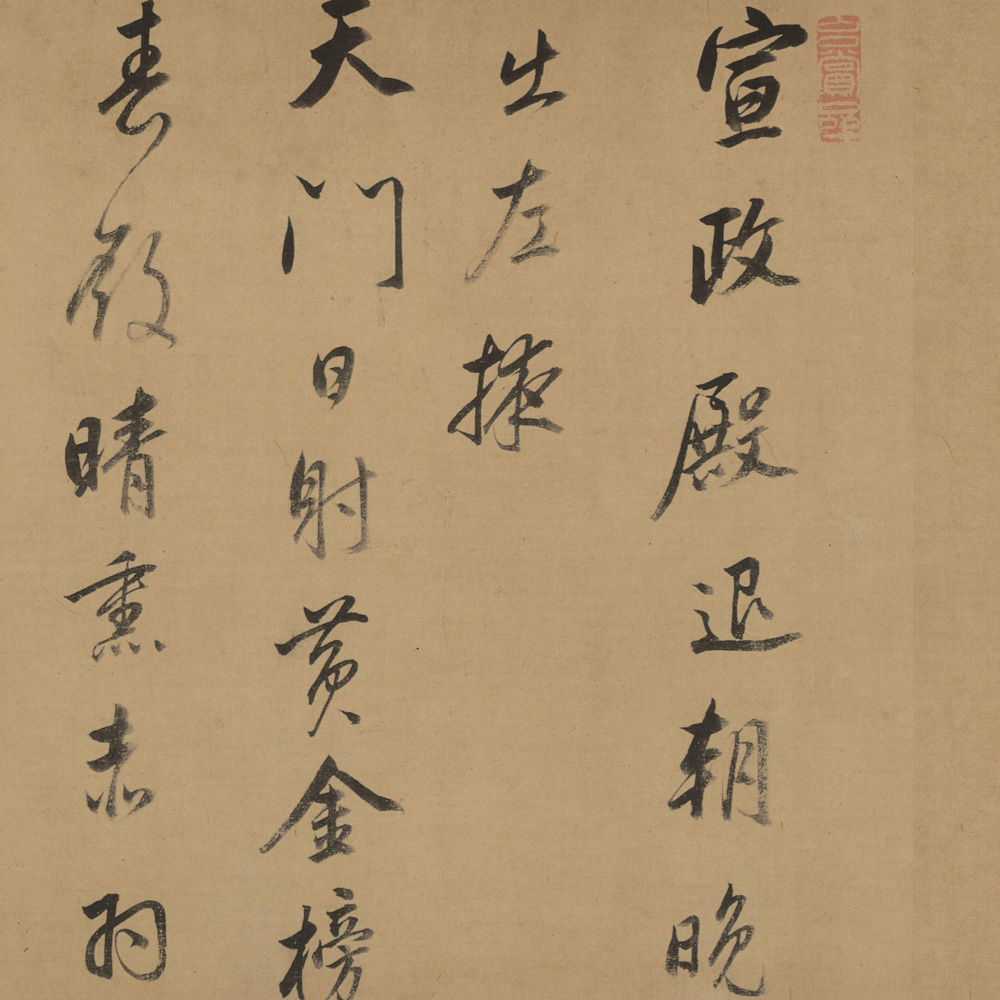 玄賞齋
宣政殿退朝晚
出左掖
天門日射黃金榜
春殿晴熏赤羽